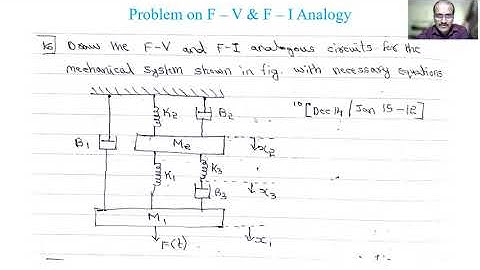 Problem on F – V & F – I Analogy
Draw the F-V and F-I analogous circuits for the
mechanical system shown in fig. with necessary equations
10 [Dec 14 / Jan 15 - 12]
K2
B2
B1
M2
x2
K1
K3
x3
B3
M1
F(t)
x1